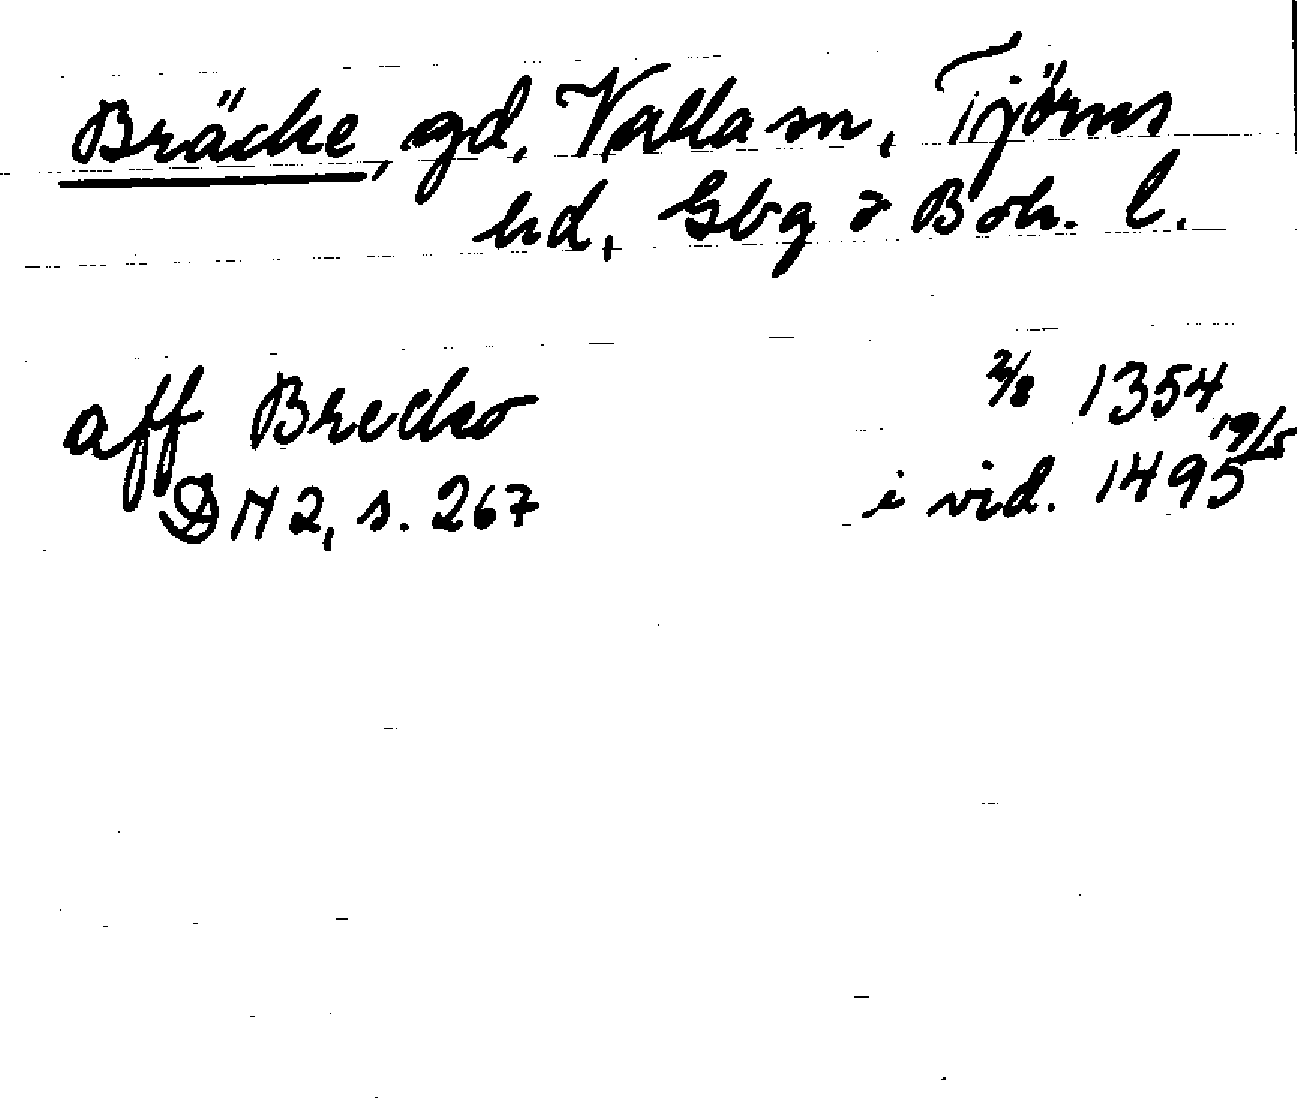 Bräcke, gd, Valla sn, Tjörns
hd, Gbg o Boh. l.
aff Brecko 2/8 1354
DN 2, s. 267 i vid. 1495 19/5